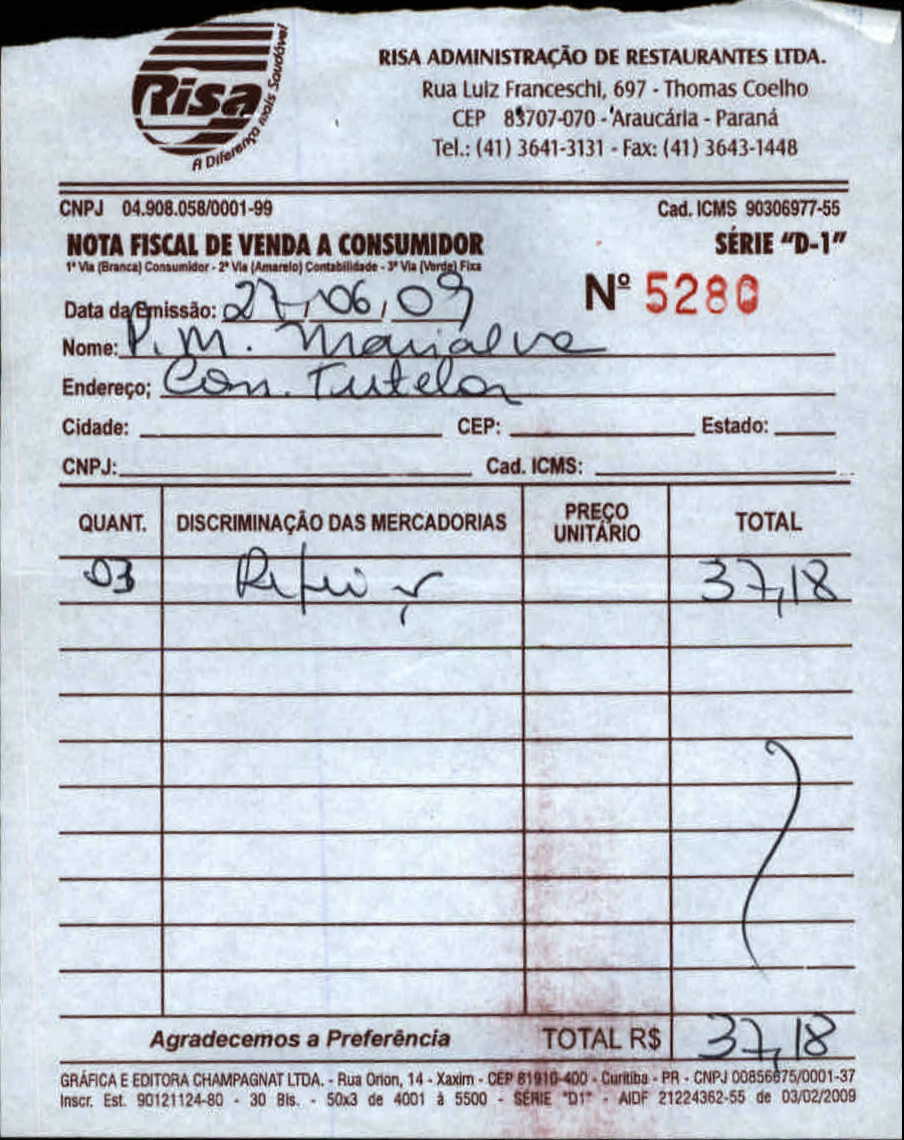 Risa
A Diferença mais Saudável
RISA ADMINISTRAÇÃO DE RESTAURANTES LTDA.
Rua Luiz Franceschi, 697 - Thomas Coelho
CEP 83707-070 - Araucária - Paraná
Tel.: (41) 3641-3131 - Fax: (41) 3643-1448
CNPJ 04.908.058/0001-99 Cad. ICMS 90306977-55
NOTA FISCAL DE VENDA A CONSUMIDOR SÉRIE "D-1"
1ª Via (Branca) Consumidor - 2ª Via (Amarelo) Contabilidade - 3ª Via (Verde) Fixa
Nº 5280
Data da Emissão: 27/06/09
Nome: P.M. Marialva
Endereço; Con. Tutelar
Cidade: CEP: Estado:
CNPJ: Cad. ICMS:
QUANT. DISCRIMINAÇÃO DAS MERCADORIAS PREÇO UNITÁRIO TOTAL
03 37,18
Agradecemos a Preferência TOTAL R$ 37,18
GRÁFICA E EDITORA CHAMPAGNAT LTDA. - Rua Orion, 14 - Xaxim - CEP 81910-400 - Curitiba - PR - CNPJ 00856675/0001-37
Inscr. Est. 90121124-80 - 30 Bls. - 50x3 de 4001 à 5500 - SÉRIE "D1" - AIDF 21224362-55 de 03/02/2009